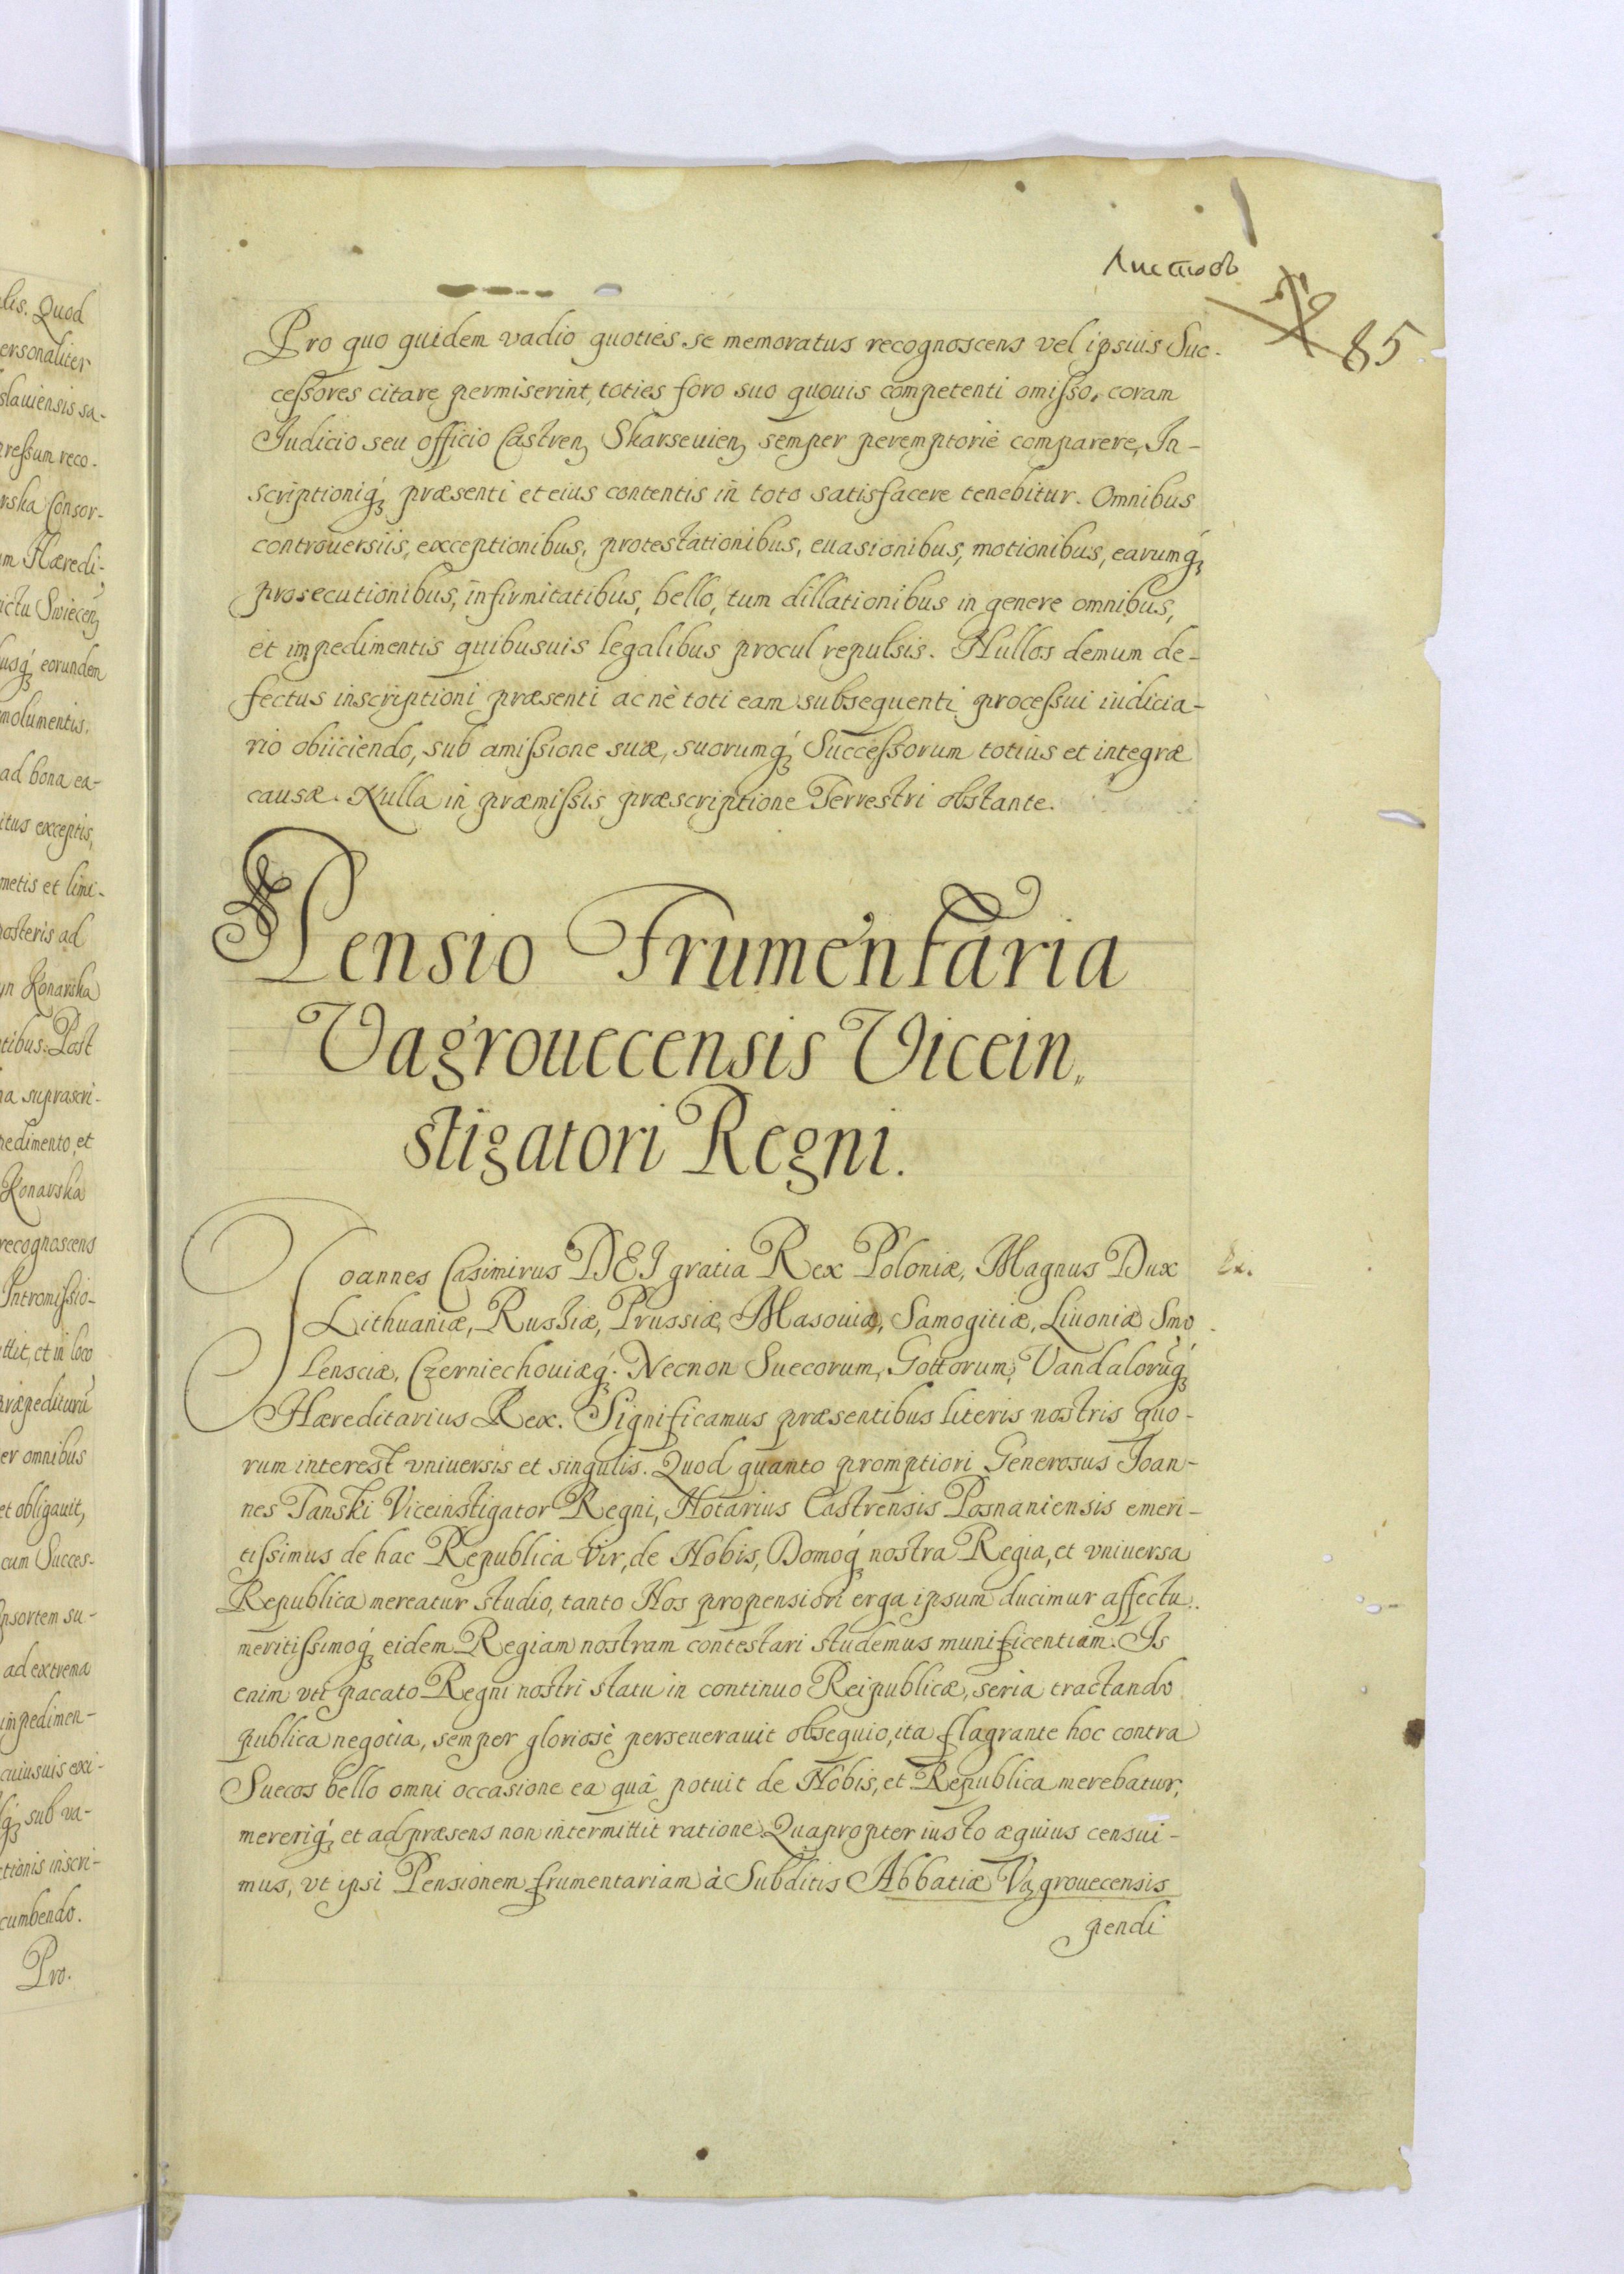 lis. Quod
ersonaliter
slauiensis sa-
pressum reco-
rska Consor-
m Hæredi-
ictu Swiecen̄
usq́ eorundem
molumentis,
ad bona ea-
itus exceptis,
metis et limi-
osteris ad
yn Konarska
tibus: Post
na suprascri-
pedimento, et
Konarska
recognoscens
Intromissio-
ttit, et in loco
præpediturū
er omnibus
et obligauit,
cum Succes-
onsortem su-
ad extrema
impedimen-
cuiusuis exi-
q́ sub va-
ctionis inscri-
cumbendo.
Pro.
Листовъ
85
Pro quo quidem vadio quoties se memoratus recognoscens vel ipsius Suc-
cessores citare permiserint, toties foro suo quouis competenti omisso, coram
Judicio seu officio Castren̄ Skarseuien̄ semper peremptorie comparere, In-
scriptioniq́ præsenti et eius contentis in toto satisfacere tenebitur. Omnibus
controuersiis, exceptionibus, protestationibus, euasionibus, motionibus, earumq́
prosecutionibus, infirmitatibus, bello, tum dillationibus in genere omnibus,
et impedimentis quibusuis legalibus procul repulsis. Nullos demum de-
fectus inscriptioni præsenti ac nè toti eam subsequenti processui iudicia-
rio obiiciendo, sub amissione suæ, suorumq́ Successorum totius et integræ
causæ. Nulla in præmissis præscriptione Terrestri obstante.
Pensio Frumentaria
Vagrouecensis Vicein,,
stigatori Regni.
Joannes Casimirus DEI gratia Rex Poloniæ, Magnus Dux
Lithuaniæ, Russiæ, Prussiæ, Masouiæ, Samogitiæ, Liuoniæ Smo-
lensciæ, Czerniechouiæq́. Necnon Suecorum, Gottorum, Vandalorūq́
Hæreditarius Rex. Significamus præsentibus literis nostris quo-
rum interest vniuersis et singulis. Quod quanto promptiori Generosus Joan-
nes Tanski Viceinstigator Regni, Notarius Castrensis Posnaniensis emeri-
tissimus de hac Republica Vir, de Nobis, Domoq́ nostra Regia, et vniuersa
Republica mereatur studio, tanto Nos propensiori erga ipsum ducimur affectu:
meritissimoq́ eidem Regiam nostram contestari studemus munificentiam. Is
enim vti pacato Regni nostri statu in continuo Reipublicæ, seria tractando
publica negotia, semper gloriosè perseuerauit obsequio, ita flagrante hoc contra
Suecos bello omni occasione ea quâ potuit de Nobis, et Republica merebatur,
mereriq́, et ad præsens non intermittit ratione. Quapropter iusto æquius censui-
mus, vt ipsi Pensionem frumentariam à Subditis Abbatiæ Vągrouecensis
pendi